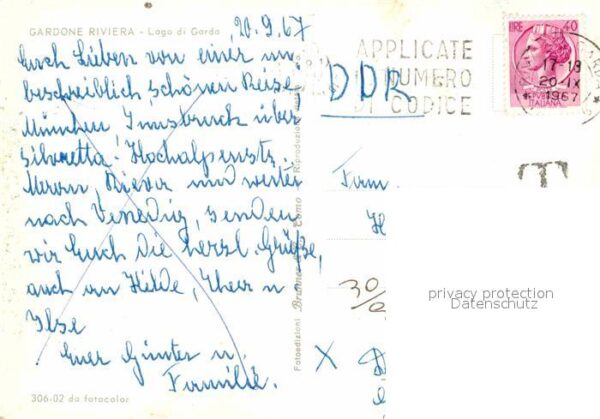 GARDONE RIVIERA - Lago di Garda
20.9.67
Euch Lieben von einer un
beschreiblich schönen Reise
München, Innsbruck über
Silvretta! Hochalpenstr.
Meran, Riva und weiter
nach Venedig, senden
wir Euch die herzl. Grüße,
auch an Hilde, u
Ilse
Euer Günter u.
Familie.
306-02 da fotocolor
Fotoedizioni Como Riproduzione
APPLICATE
NUMERO
DI CODICE
LIRE 40
17-18
20-IX
1967
ITALIANA
DDR
T
Fam
H
30/
X
privacy protection
Datenschutz